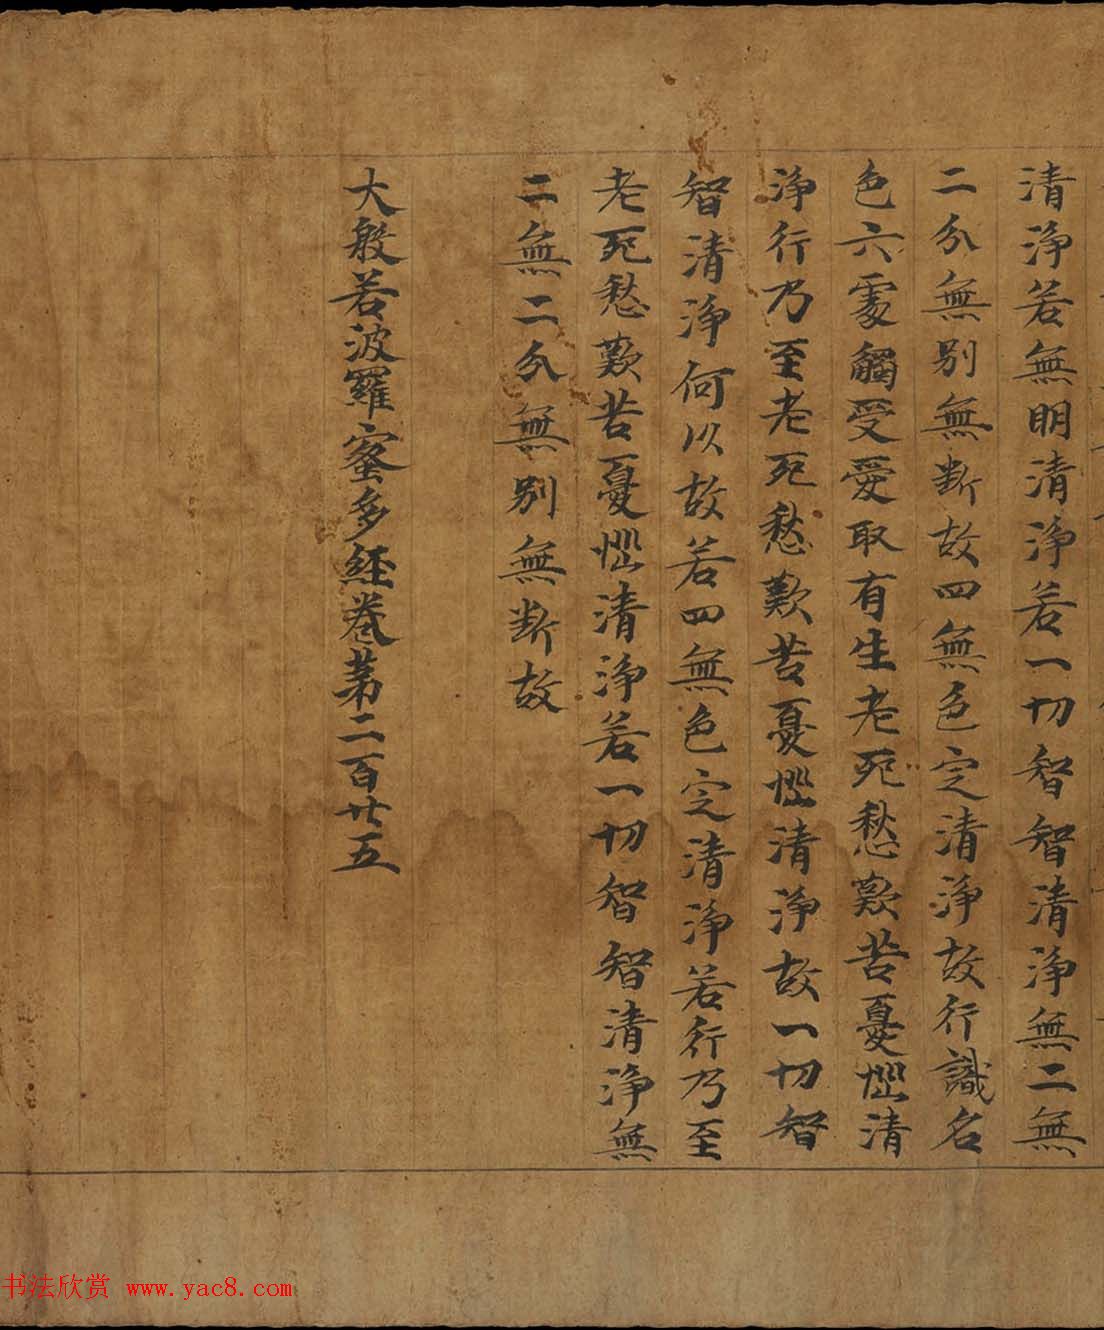 清淨若無明清淨若一切智智清淨無二無
二分無別無斷故四無色定清淨故行識名
色六處觸受愛取有生老死愁歎苦憂惱清
淨行乃至老死愁歎苦憂惱清淨故一切智
智清淨何以故若四無色定清淨若行乃至
老死愁歎苦憂惱清淨若一切智智清淨無
二無二分無別無斷故
大般若波羅蜜多經卷第二百廿五
书法欣赏 www.yac8.com